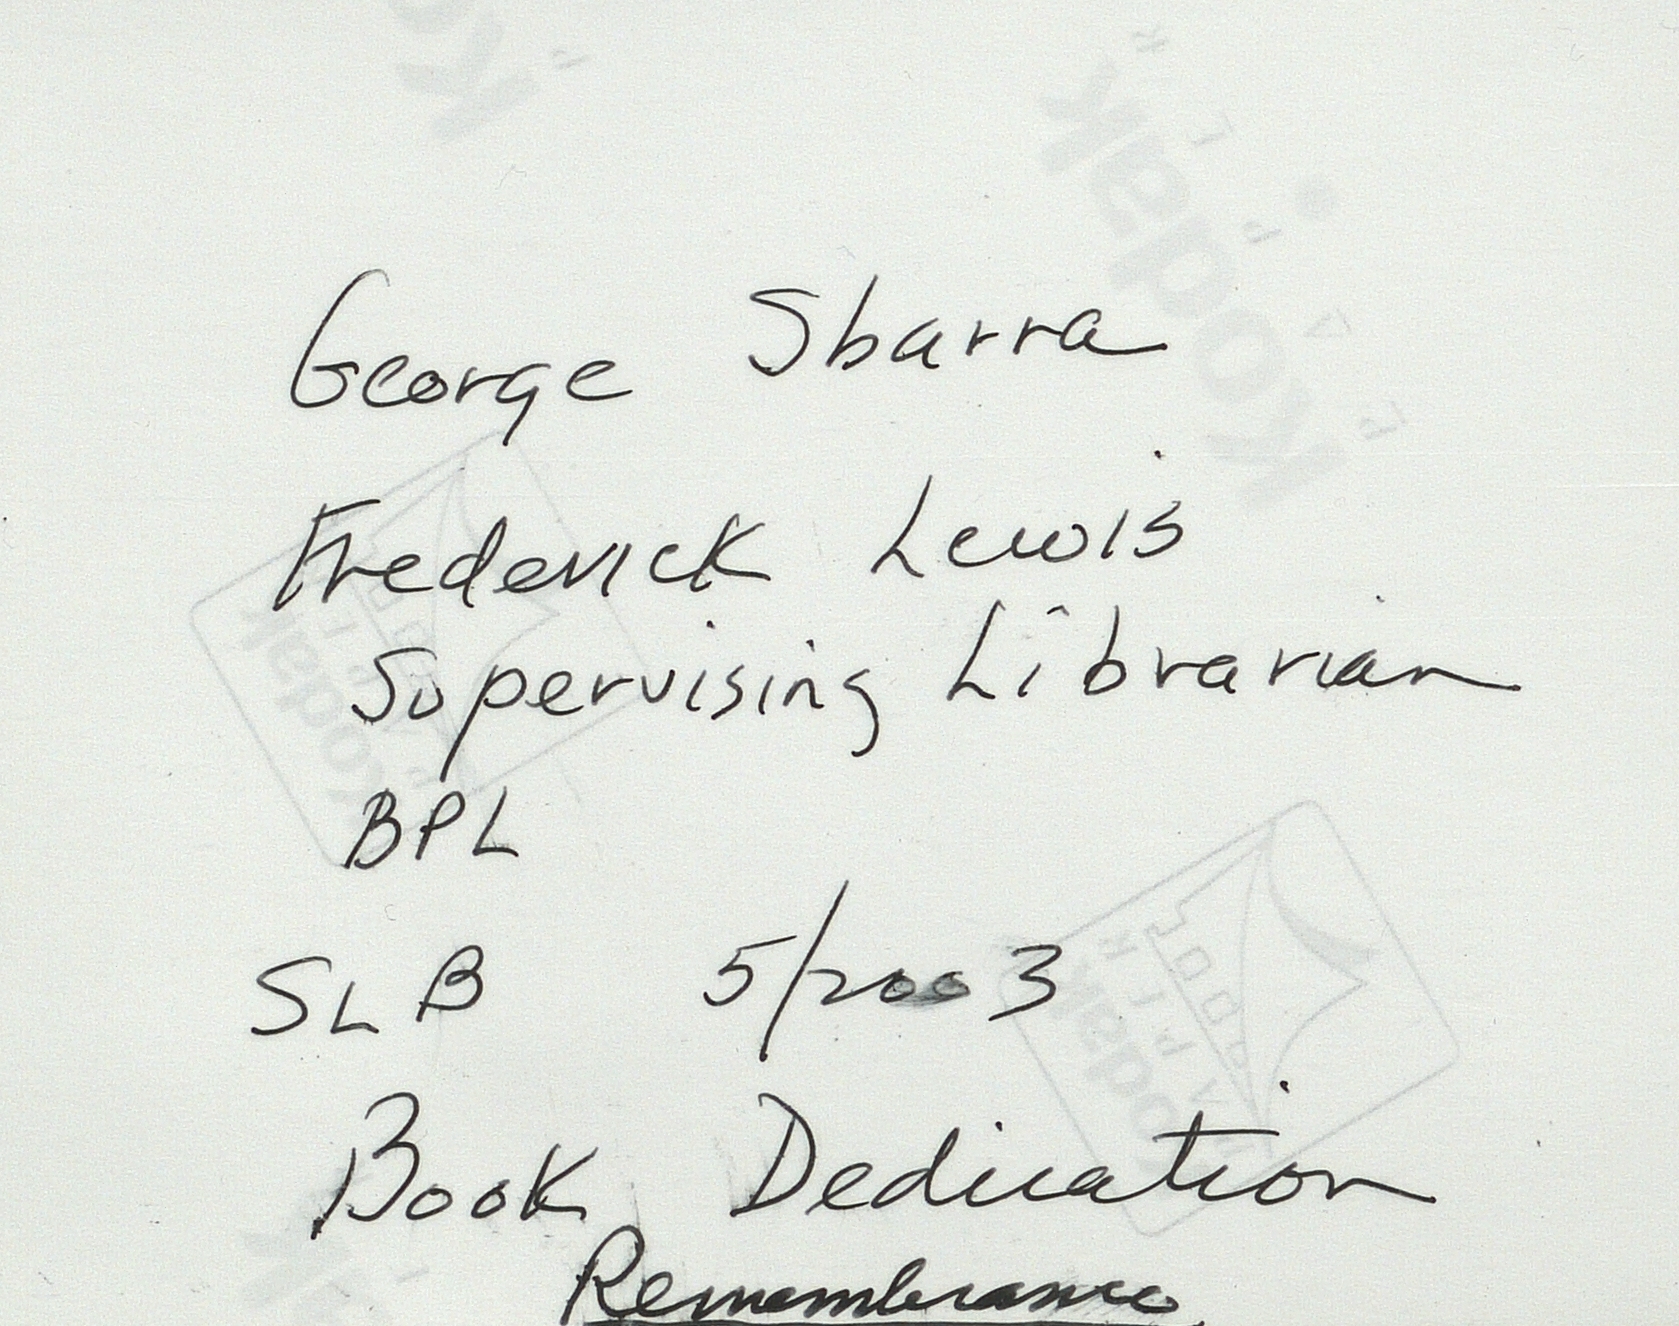 George Sbarra
Frederick Lewis
Supervising Librarian
BPL
SLB 5/2003
Book Dedication
Remembrance
Kodak
Kodak
Kodak